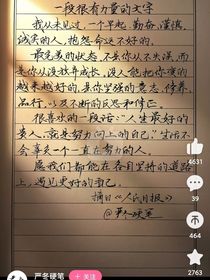 一段很有力量的文字
我从未见过,一个早起、勤奋、谨慎、
诚实的人,抱怨命运不好的。
最完美的状态,不是你从不失误,而
是你从没放弃成长。没人能把你变的
越来越好的,是你坚强的意志、修养、
品行、以及不断的反思和修正。
很喜欢的一段话:“人生最好的
贵人,就是努力向上的自己。”生活不
会辜负一个一直在努力的人。
愿我们都能在各自坚持的道路
上,遇见更好的自己。
摘自《人民日报》
4631
464
2763
严冬硬笔
关注